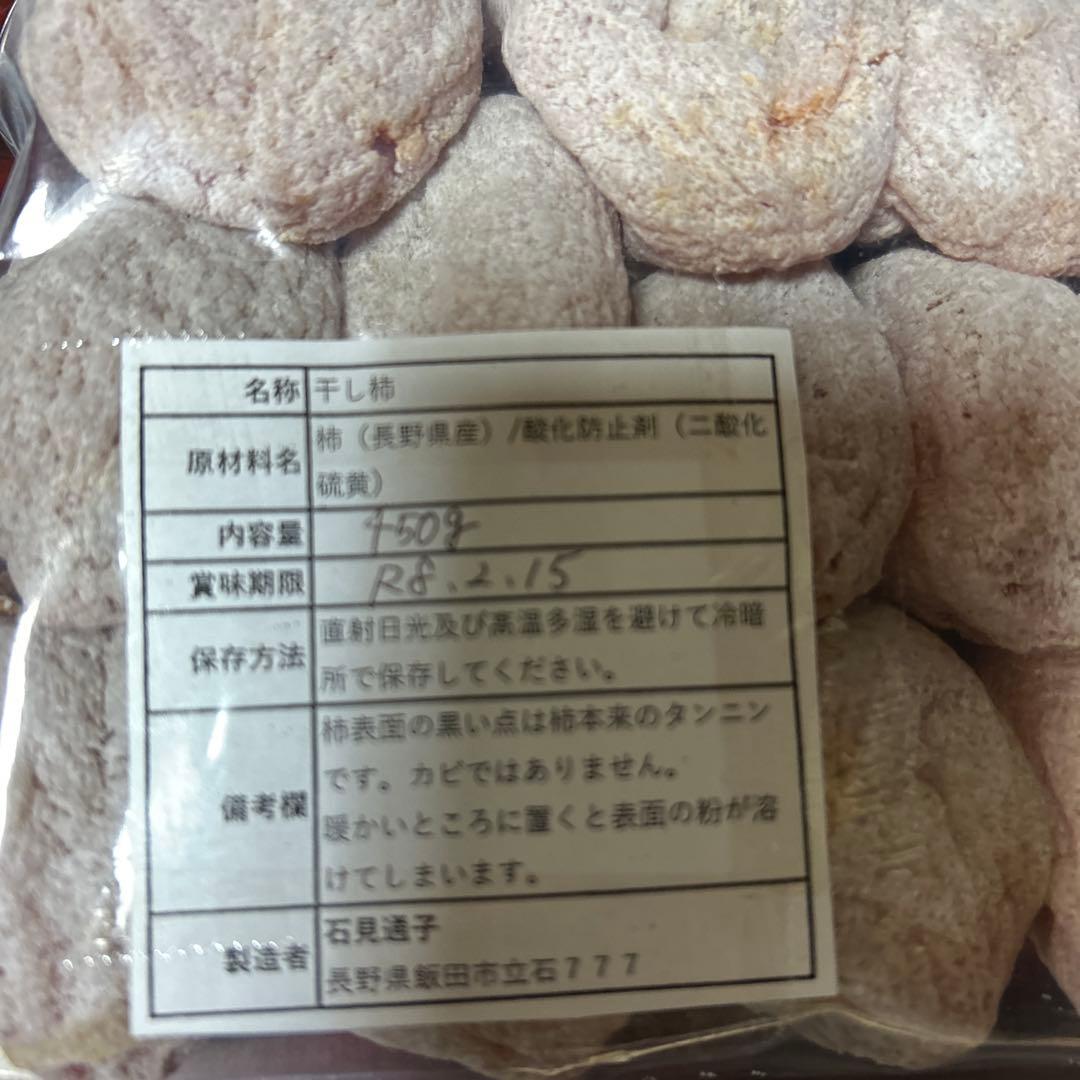 名称 干し柿
原材料名 柿（長野県産）/酸化防止剤（二酸化
硫黄）
内容量 450g
賞味期限 R8.2.15
保存方法 直射日光及び高温多湿を避けて冷暗
所で保存してください。
備考欄 柿表面の黒い点は柿本来のタンニン
です。カビではありません。
暖かいところに置くと表面の粉が溶
けてしまいます。
製造者 石見通子
長野県飯田市立石７７７